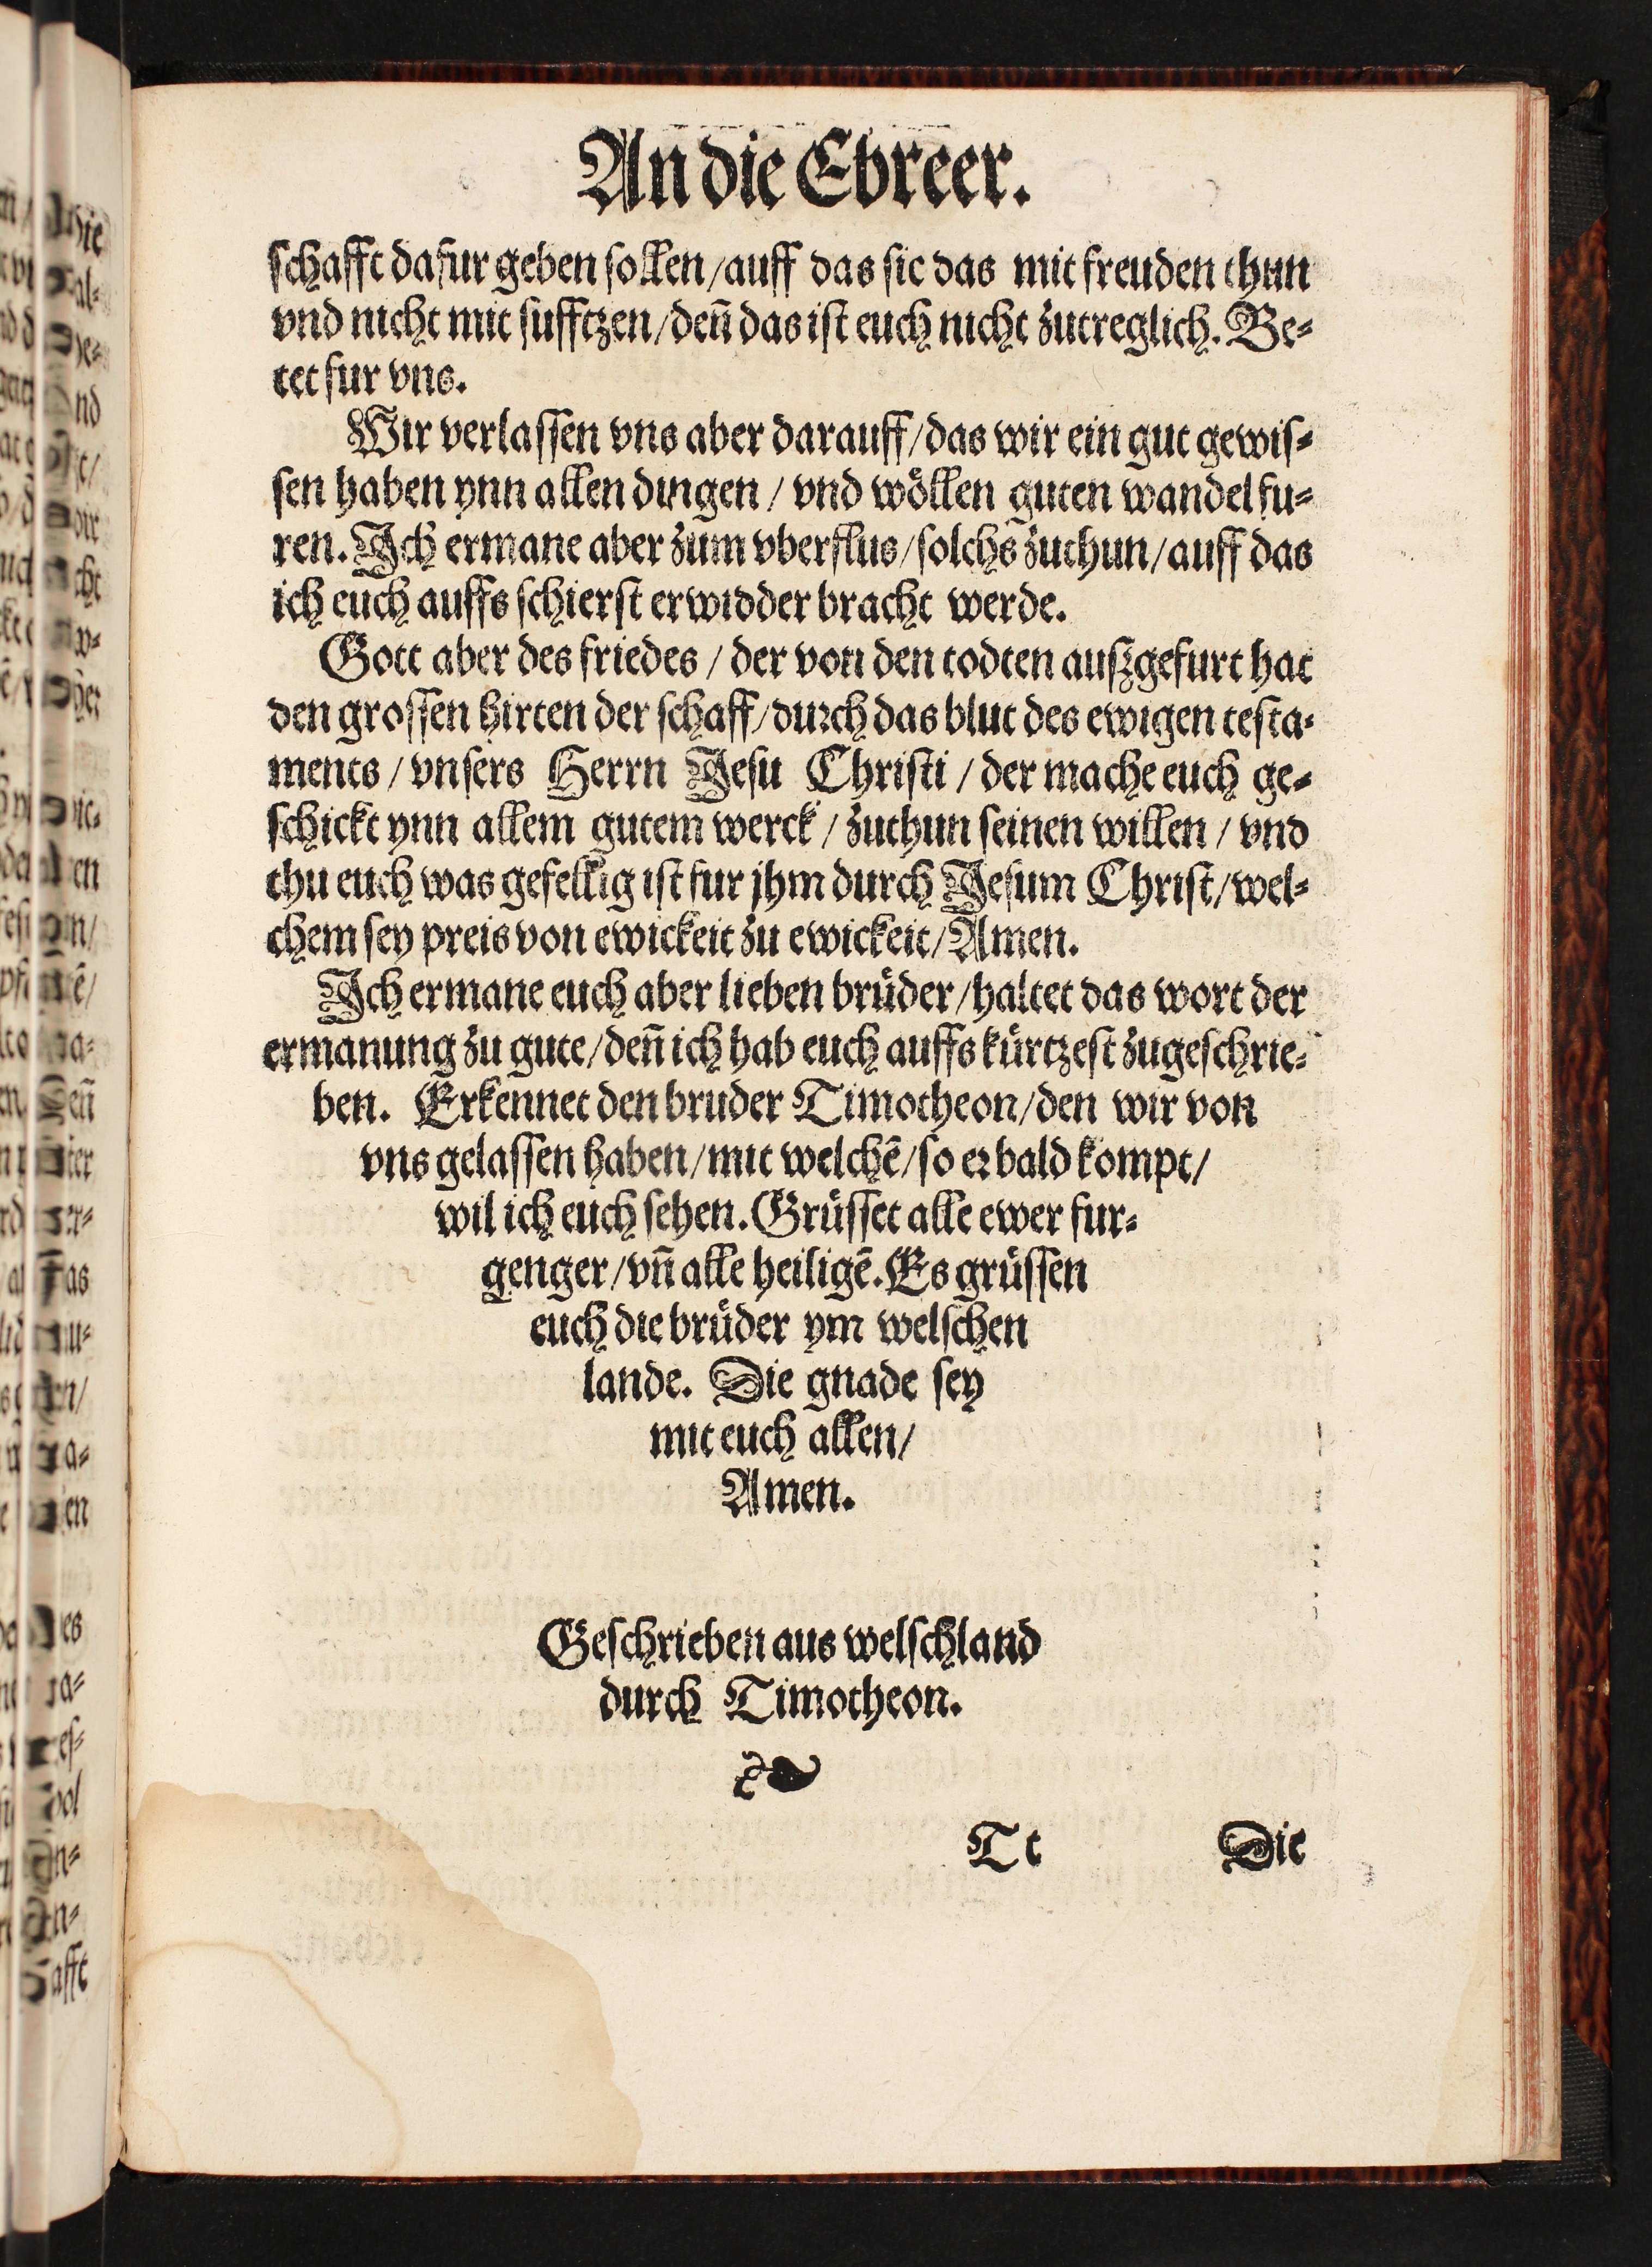 An die Ebreer.
schafft dafur geben sollen/auff das sie das mit freuden thun
vnd nicht mit sufftzen/deñ das ist euch nicht zutreglich. Be⸗
tet fur vns.
Wir verlassen vns aber darauff/das wir ein gut gewis⸗
sen haben ynn allen dingen / vnd wöllen guten wandel fu⸗
ren. Ich ermane aber zum vberflus/solchs zuthun/auff das
ich euch auffs schierst erwidder bracht werde.
Gott aber des friedes / der von den todten auszgefurt hat
den grossen hirten der schaff/durch das blut des ewigen testa⸗
ments / vnsers Herrn Jesu Christi / der mache euch ge⸗
schickt ynn allem gutem werck / zuthun seinen willen / vnd
thu euch was gefellig ist fur jhm durch Jesum Christ/wel⸗
chem sey preis von ewickeit zu ewickeit/Amen.
Ich ermane euch aber lieben brüder/haltet das wort der
ermanung zu gute/deñ ich hab euch auffs kürtzest zugeschrie⸗
ben. Erkennet den bruder Timotheon/den wir von
vns gelassen haben/mit welchē/so er bald kompt/
wil ich euch sehen. Grüsset alle ewer fur⸗
genger/vñ alle heiligē. Es grüssen
euch die brüder ym welschen
lande. Die gnade sey
mit euch allen/
Amen.
Geschrieben aus welschland
durch Timotheon.
❧
Tt Die